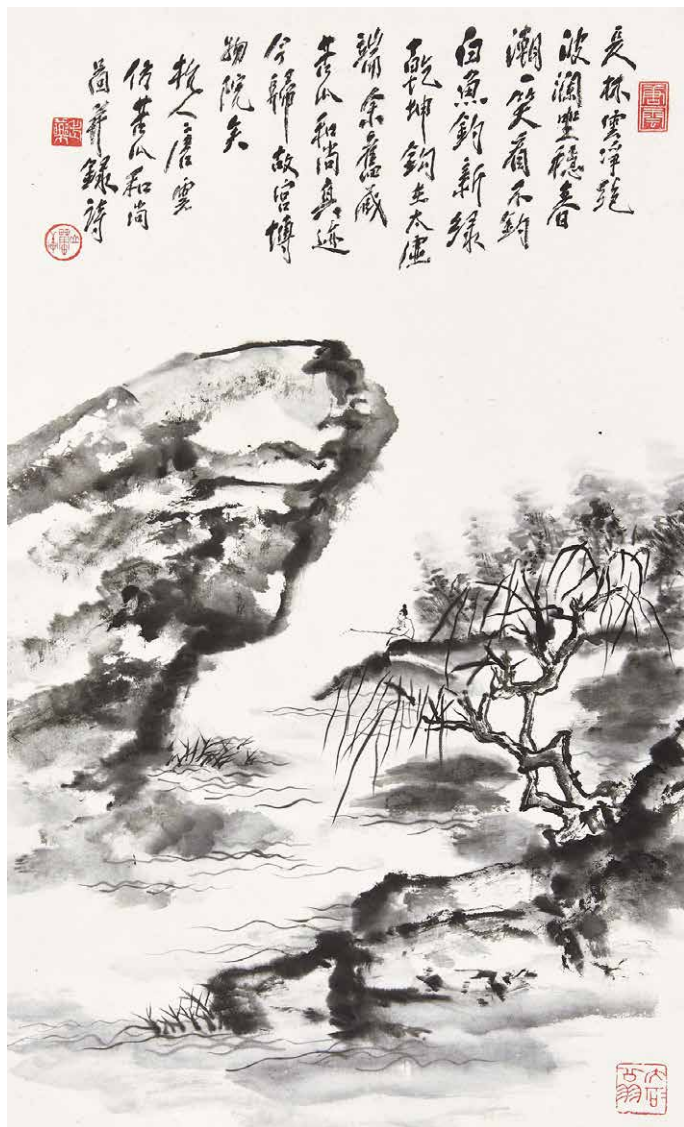 長林雲淨絕
波瀾坐穩春
潮一笑看不釣
白魚釣新綠
乾坤釣在太虛
端余舊藏
苦瓜和尚真迹
今歸故宮博
物院矣
杭人唐雲
仿苦瓜和尚
圖并錄詩
唐雲